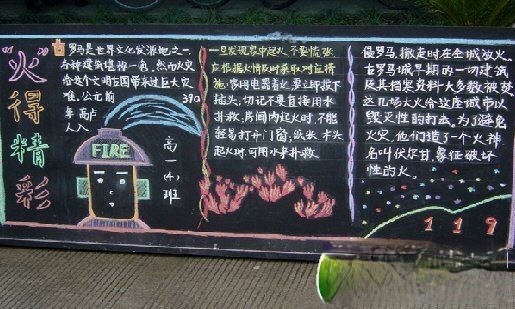 “火”得精彩
古罗马是世界文化发源地之一
各种建筑堪称一绝,然而火灾
给这个文明古国带来过巨大灾
难。公元前390
年高卢
人入
FIRE
高一(4)班
一旦发现家中起火,不要慌张,
应根据火情及时采取对应措
施。家用电器着火,要立即拔下
插头,切记不要直接用水
扑救,房间内起火时,不能
轻易打开门窗,纸张、木头
起火时,可用水来扑救。
侵罗马,撤走时在全城放火。
古罗马城早期的一切建筑
及其指定资料大多数被焚
这几场大火给这座城市以
毁灭性的打击。为了避免
火灾,他们造了一个火神
名叫伏尔甘,象征破坏
性的火。
119